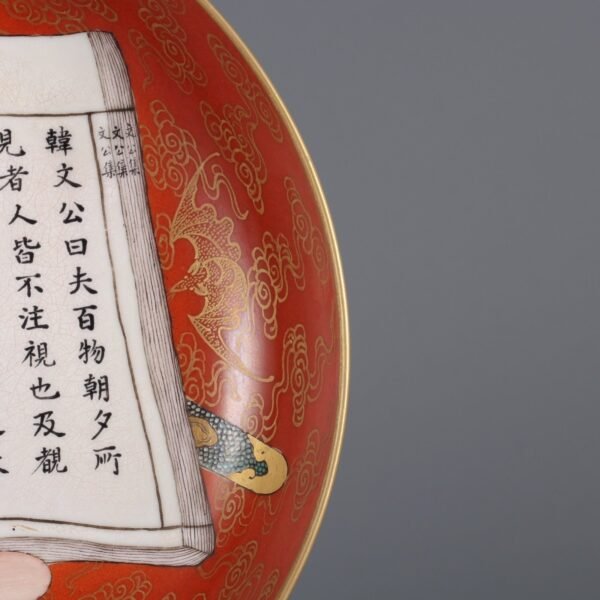 韓文公曰夫百物朝夕所
見者人皆不注視也及覩
文公集
文公集
文公集